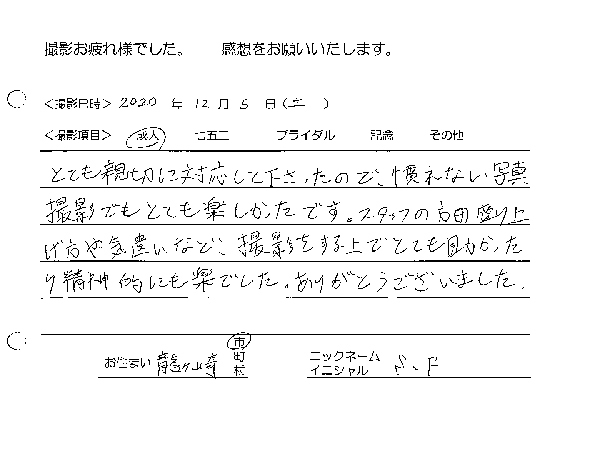 撮影お疲れ様でした。 感想をお願いいたします。
<撮影日時> 2020 年 12 月 5 日 (土)
<撮影項目> 成人 七五三 ブライダル 記念 その他
とても親切に対応して下さったので、慣れない写真
撮影でもとても楽しかったです。スタッフの方の盛り上
げ方や気遣いなど、撮影をする上でとても助かった
り精神的にも楽でした。ありがとうございました。
お住まい 龍ヶ崎 市 町 村 ニックネーム イニシャル F